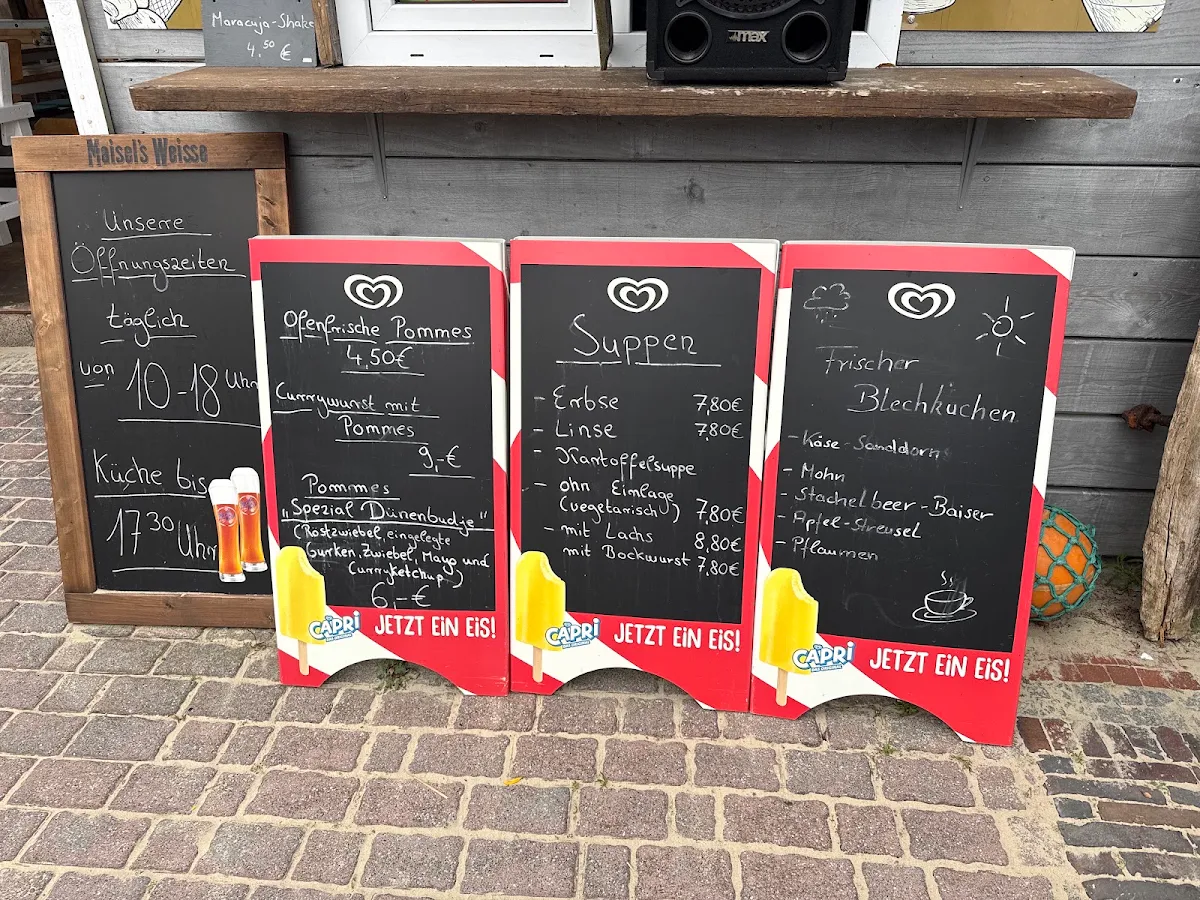 Maracuja-Shake
4,50 €
max
Maisel's Weisse
Unsere
Öffnungszeiten
täglich
von 10-18 Uhr
Küche bis
17 30 Uhr
Ofenfrische Pommes
4,50€
Currywurst mit
Pommes
9,-€
Pommes
„Spezial Dünenbudje"
(Röstzwiebel, eingelegte
Gurken, Zwiebel, Mayo und
Curryketchup)
6,-€
CAPRI
JETZT EiN EiS!
Suppen
- Erbse 7,80€
- Linse 7,80€
- Kartoffelsuppe
- ohn Einlage
(vegetarisch) 7,80€
- mit Lachs 8,80€
mit Bockwurst 7,80€
CAPRI
JETZT EiN EiS!
Frischer
Blechkuchen
- Käse-Sanddorn
- Mohn
- Stachelbeer-Baiser
- Apfel-Streusel
- Pflaumen
CAPRI
JETZT EiN EiS!